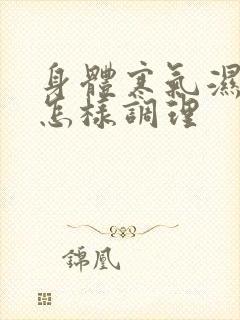 身體寒氣濕
怎樣調理
錦凰